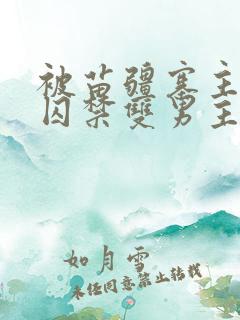 被苗疆寨主
囚禁雙男主
如月雪
未经同意禁止转载